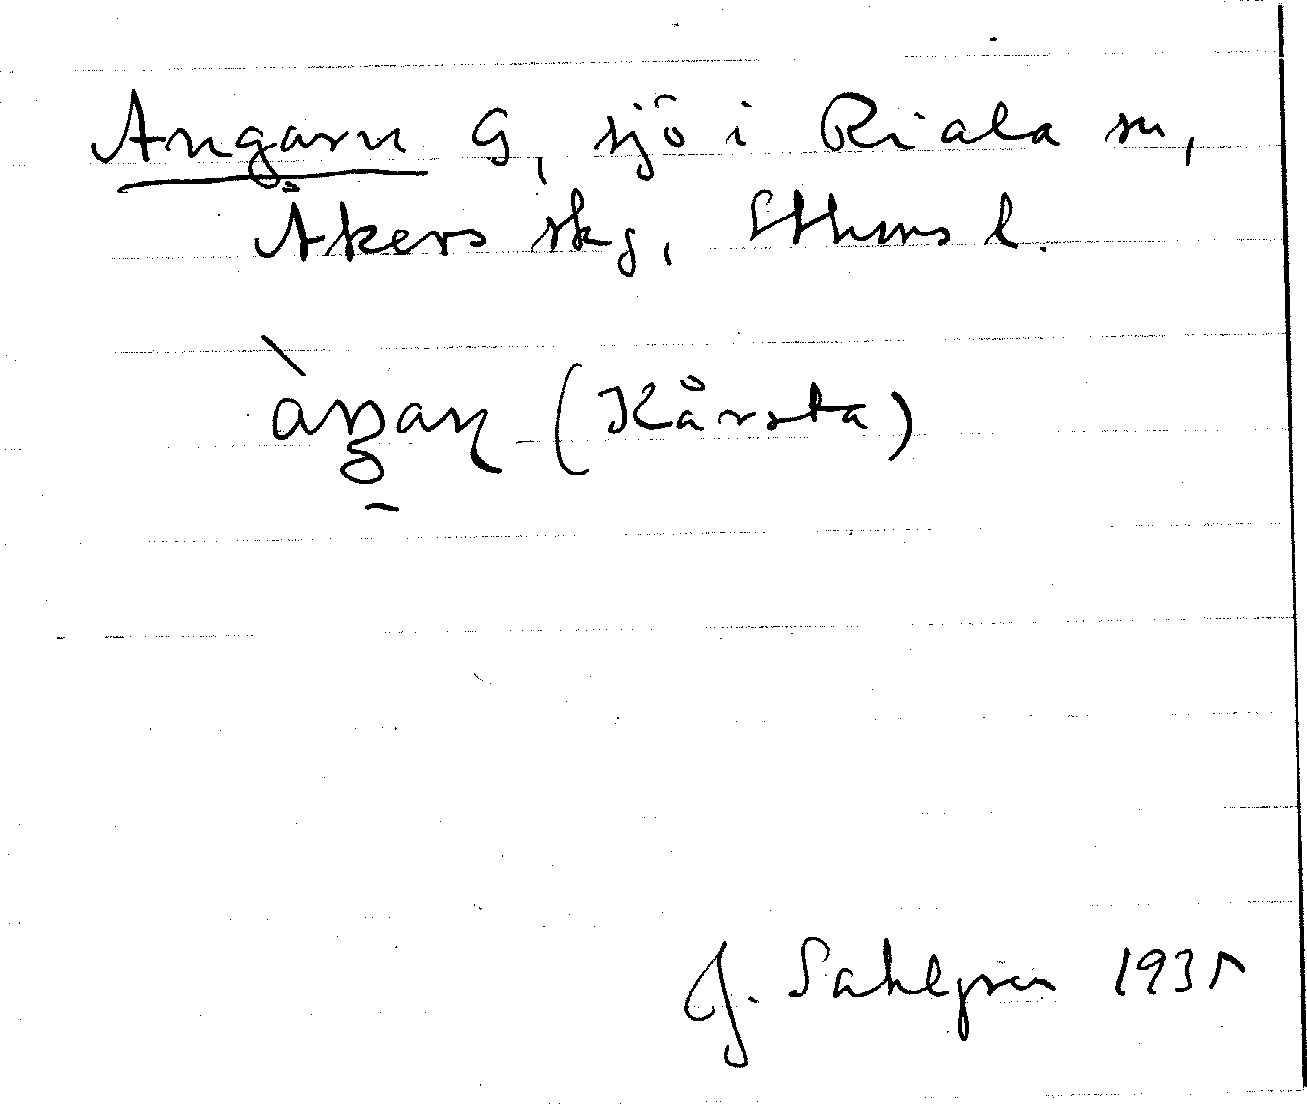 Angarn G, sjö i Riala sn,
Åkers skg, Sthms l.
(Kårsta)
J. Sahlgren 1935